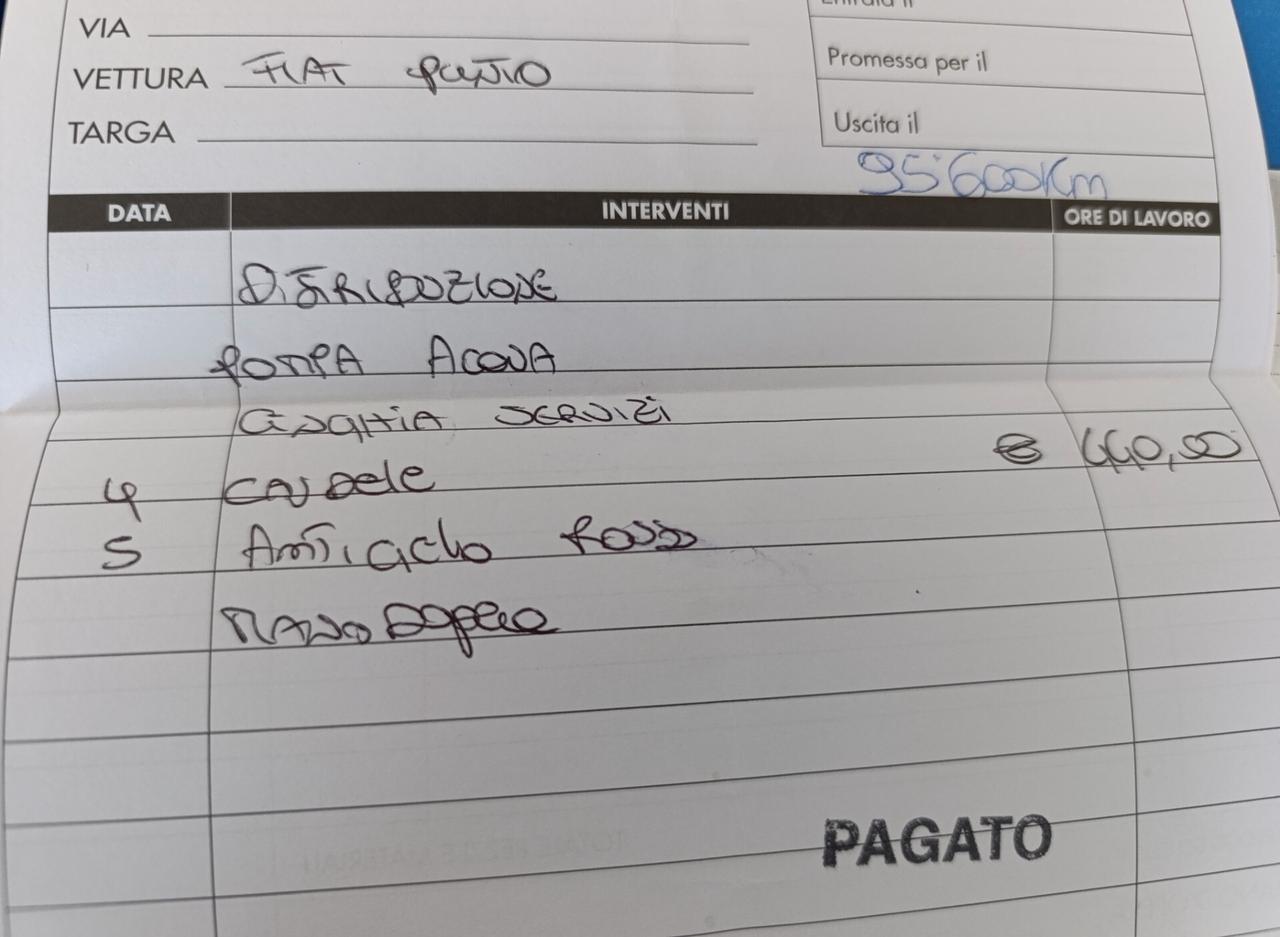 Entrata il
VIA
VETTURA FIAT PUNTO
Promessa per il
TARGA
Uscita il
95'600Km
DATA INTERVENTI ORE DI LAVORO
DISTRIBUZIONE
POMPA ACQUA
CINGHIA SERVIZI
4 CANDELE € 440,00
5 ANTIGELO ROSSO
MANODOPERA
PAGATO